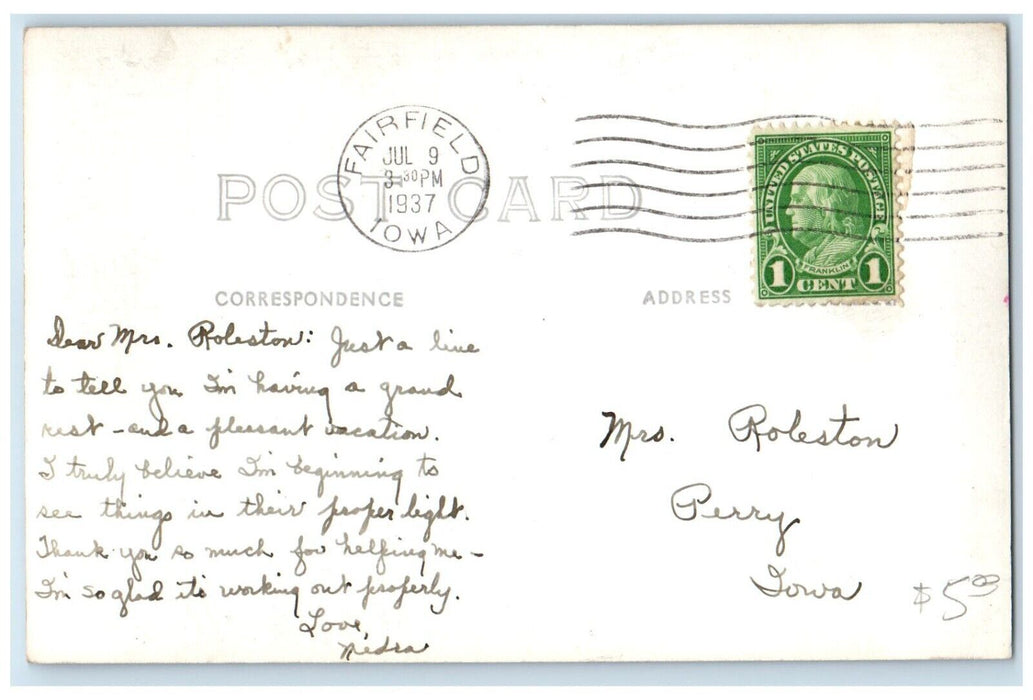 FAIRFIELD
JUL 9
3-30 PM
1937
IOWA
POST CARD
UNITED STATES POSTAGE
FRANKLIN
1 CENT 1
CORRESPONDENCE
ADDRESS
Dear Mrs. Roleston: Just a line
to tell you I'm having a grand
rest - and a pleasant vacation.
I truly believe I'm beginning to
see things in their proper light.
Thank you so much for helping me -
I'm so glad it's working out properly.
Love,
Nedra
Mrs. Roleston
Perry
Iowa
$5.00